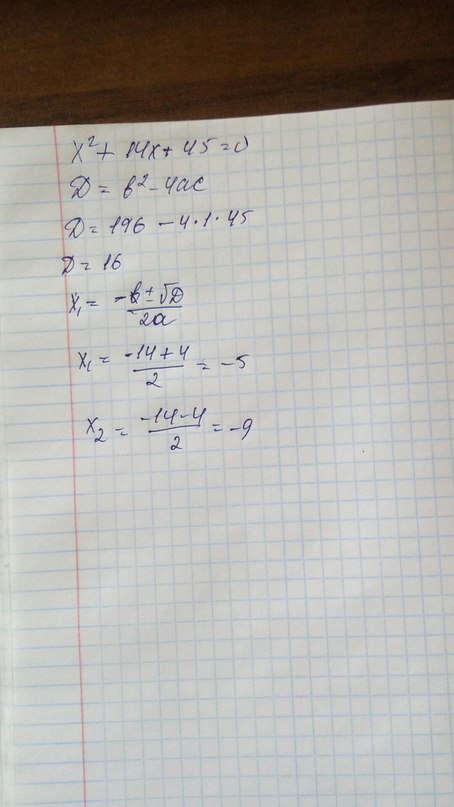 x² + 14x + 45 = 0
D = b² - 4ac
D = 196 - 4 · 1 · 45
D = 16
x₁ = (-b ± √D) / 2a
x₁ = (-14 + 4) / 2 = -5
x₂ = (-14 - 4) / 2 = -9